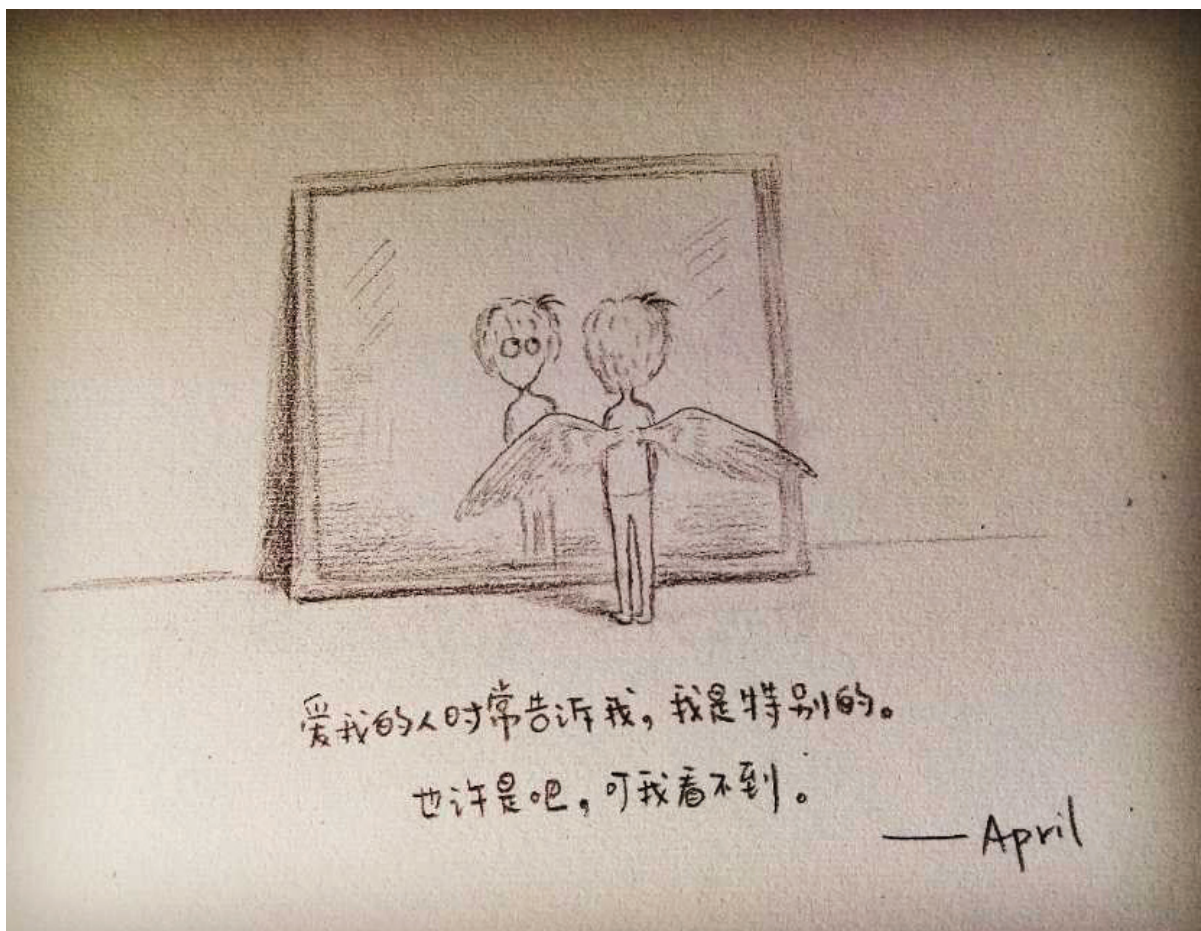 爱我的人时常告诉我，我是特别的。
也许是吧，可我看不到。
——April